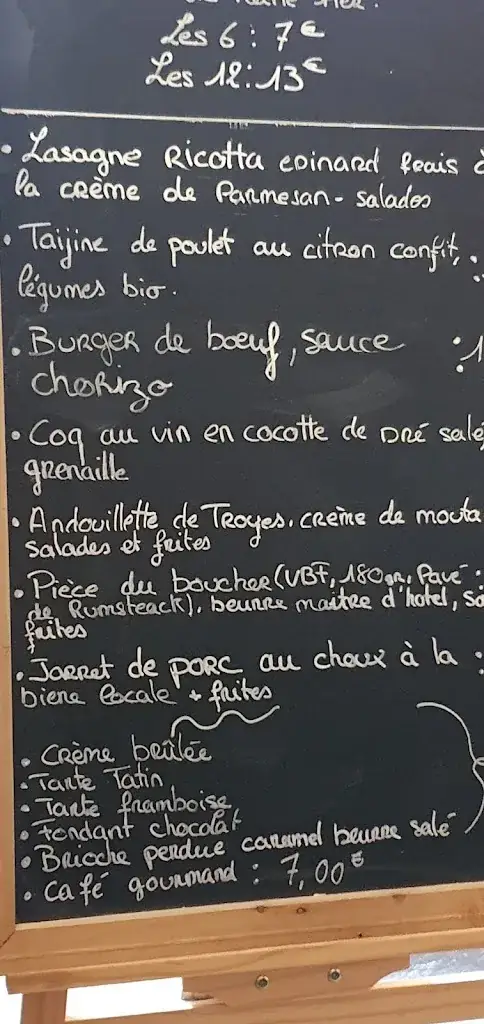 Les 6 : 7€
Les 12 : 13€
• Lasagne Ricotta epinard frais à
la crème de Parmesan - salades
• Taijine de poulet au citron confit, :
légumes bio.
• Burger de boeuf, sauce : 1
chorizo
• Coq au vin en cocotte de pré salé,
grenaille
• Andouillette de Troyes, crème de mouta
salades et frites
• Pièce du boucher (VBF, 180gr, Pavé :
de Rumsteack), beurre maitre d'hotel, sa
frites
• Jarret de porc au choux à la :
biere locale + frites
• Crème brûlée
• Tarte Tatin
• Tarte framboise
• Fondant chocolat
• Brioche perdue caramel beurre salé
• Café gourmand : 7,00€